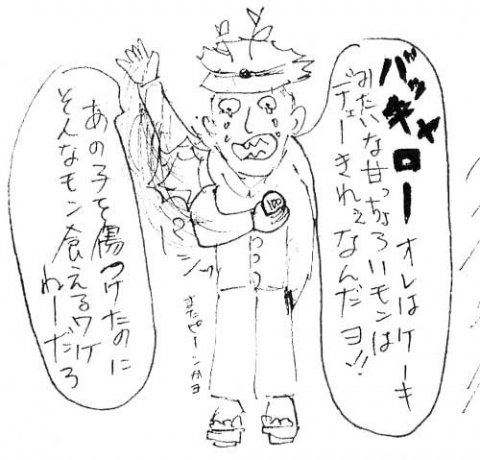 バッキャローオレはケーキ
みたいな甘っちょろいモンは
デェーきれェなんだヨ!!
100
あの子を傷つけたのに
そんなモン食えるワケ
ねーだろ